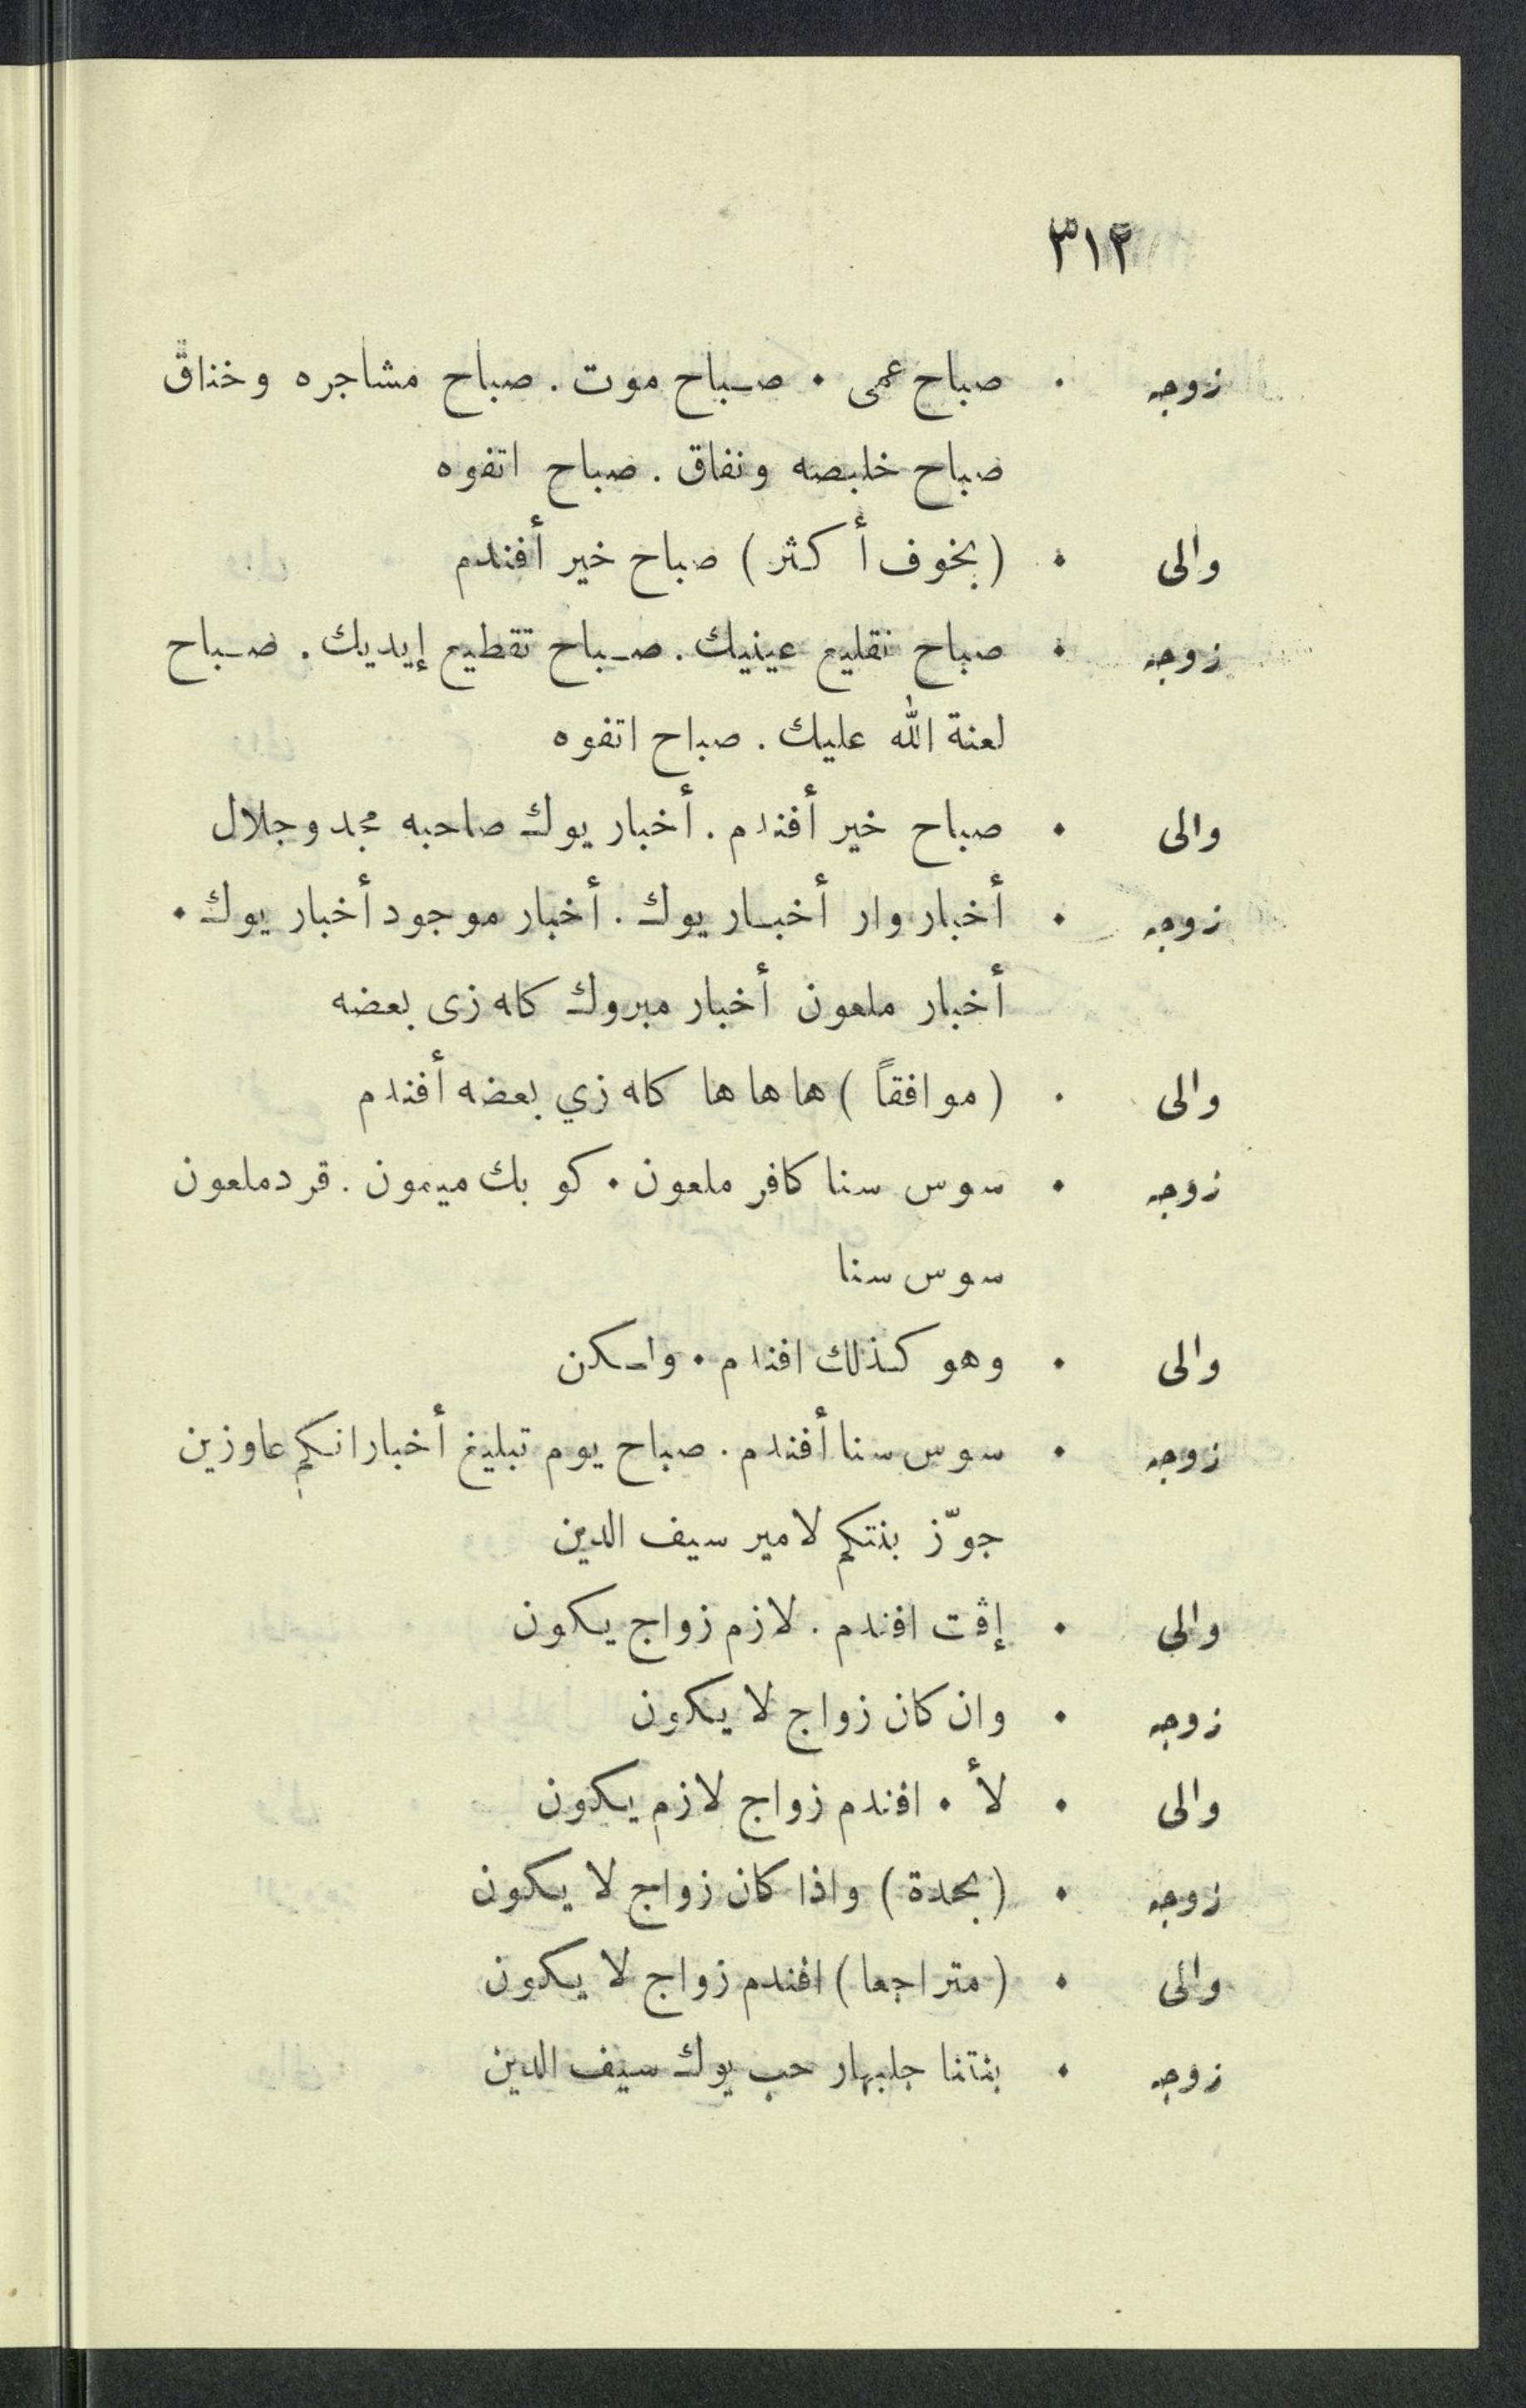 ٣١٢
زوجه . صباح عمى . صباح موت . صباح مشاجره وخناق
صباح خلبصه ونفاق . صباح اتفوه
والى . (بخوف أكثر) صباح خير أفندم
زوجه . صباح تقليع عينيك . صباح تقطيع إيديك . صباح
لعنة الله عليك . صباح اتفوه
والى . صباح خير أفندم . أخبار يوك صاحبه مجد وجلال
زوجه . أخبار وار أخبار يوك . أخبار موجود أخبار يوك .
أخبار ملعون أخبار مبروك كله زى بعضه
والى . (موافقاً) ها ها ها كله زي بعضه أفندم
زوجه . سوس سنا كافر ملعون . كو بك ميمون . قرد ملعون
سوس سنا
والى . وهو كذلك افندم . ولكن
زوجه . سوس سنا أفندم . صباح يوم تبليغ أخبار انكم عاوزين
جوّز بنتكم لامير سيف الدين
والى . إڤت افندم . لازم زواج يكون
زوجه . وان كان زواج لا يكون
والى . لأ . افندم زواج لازم يكون
زوجه . (بحدة) واذا كان زواج لا يكون
والى . (متراجعا) افندم زواج لا يكون
زوجه . بنتنا جلبهار حب يوك سيف الدين